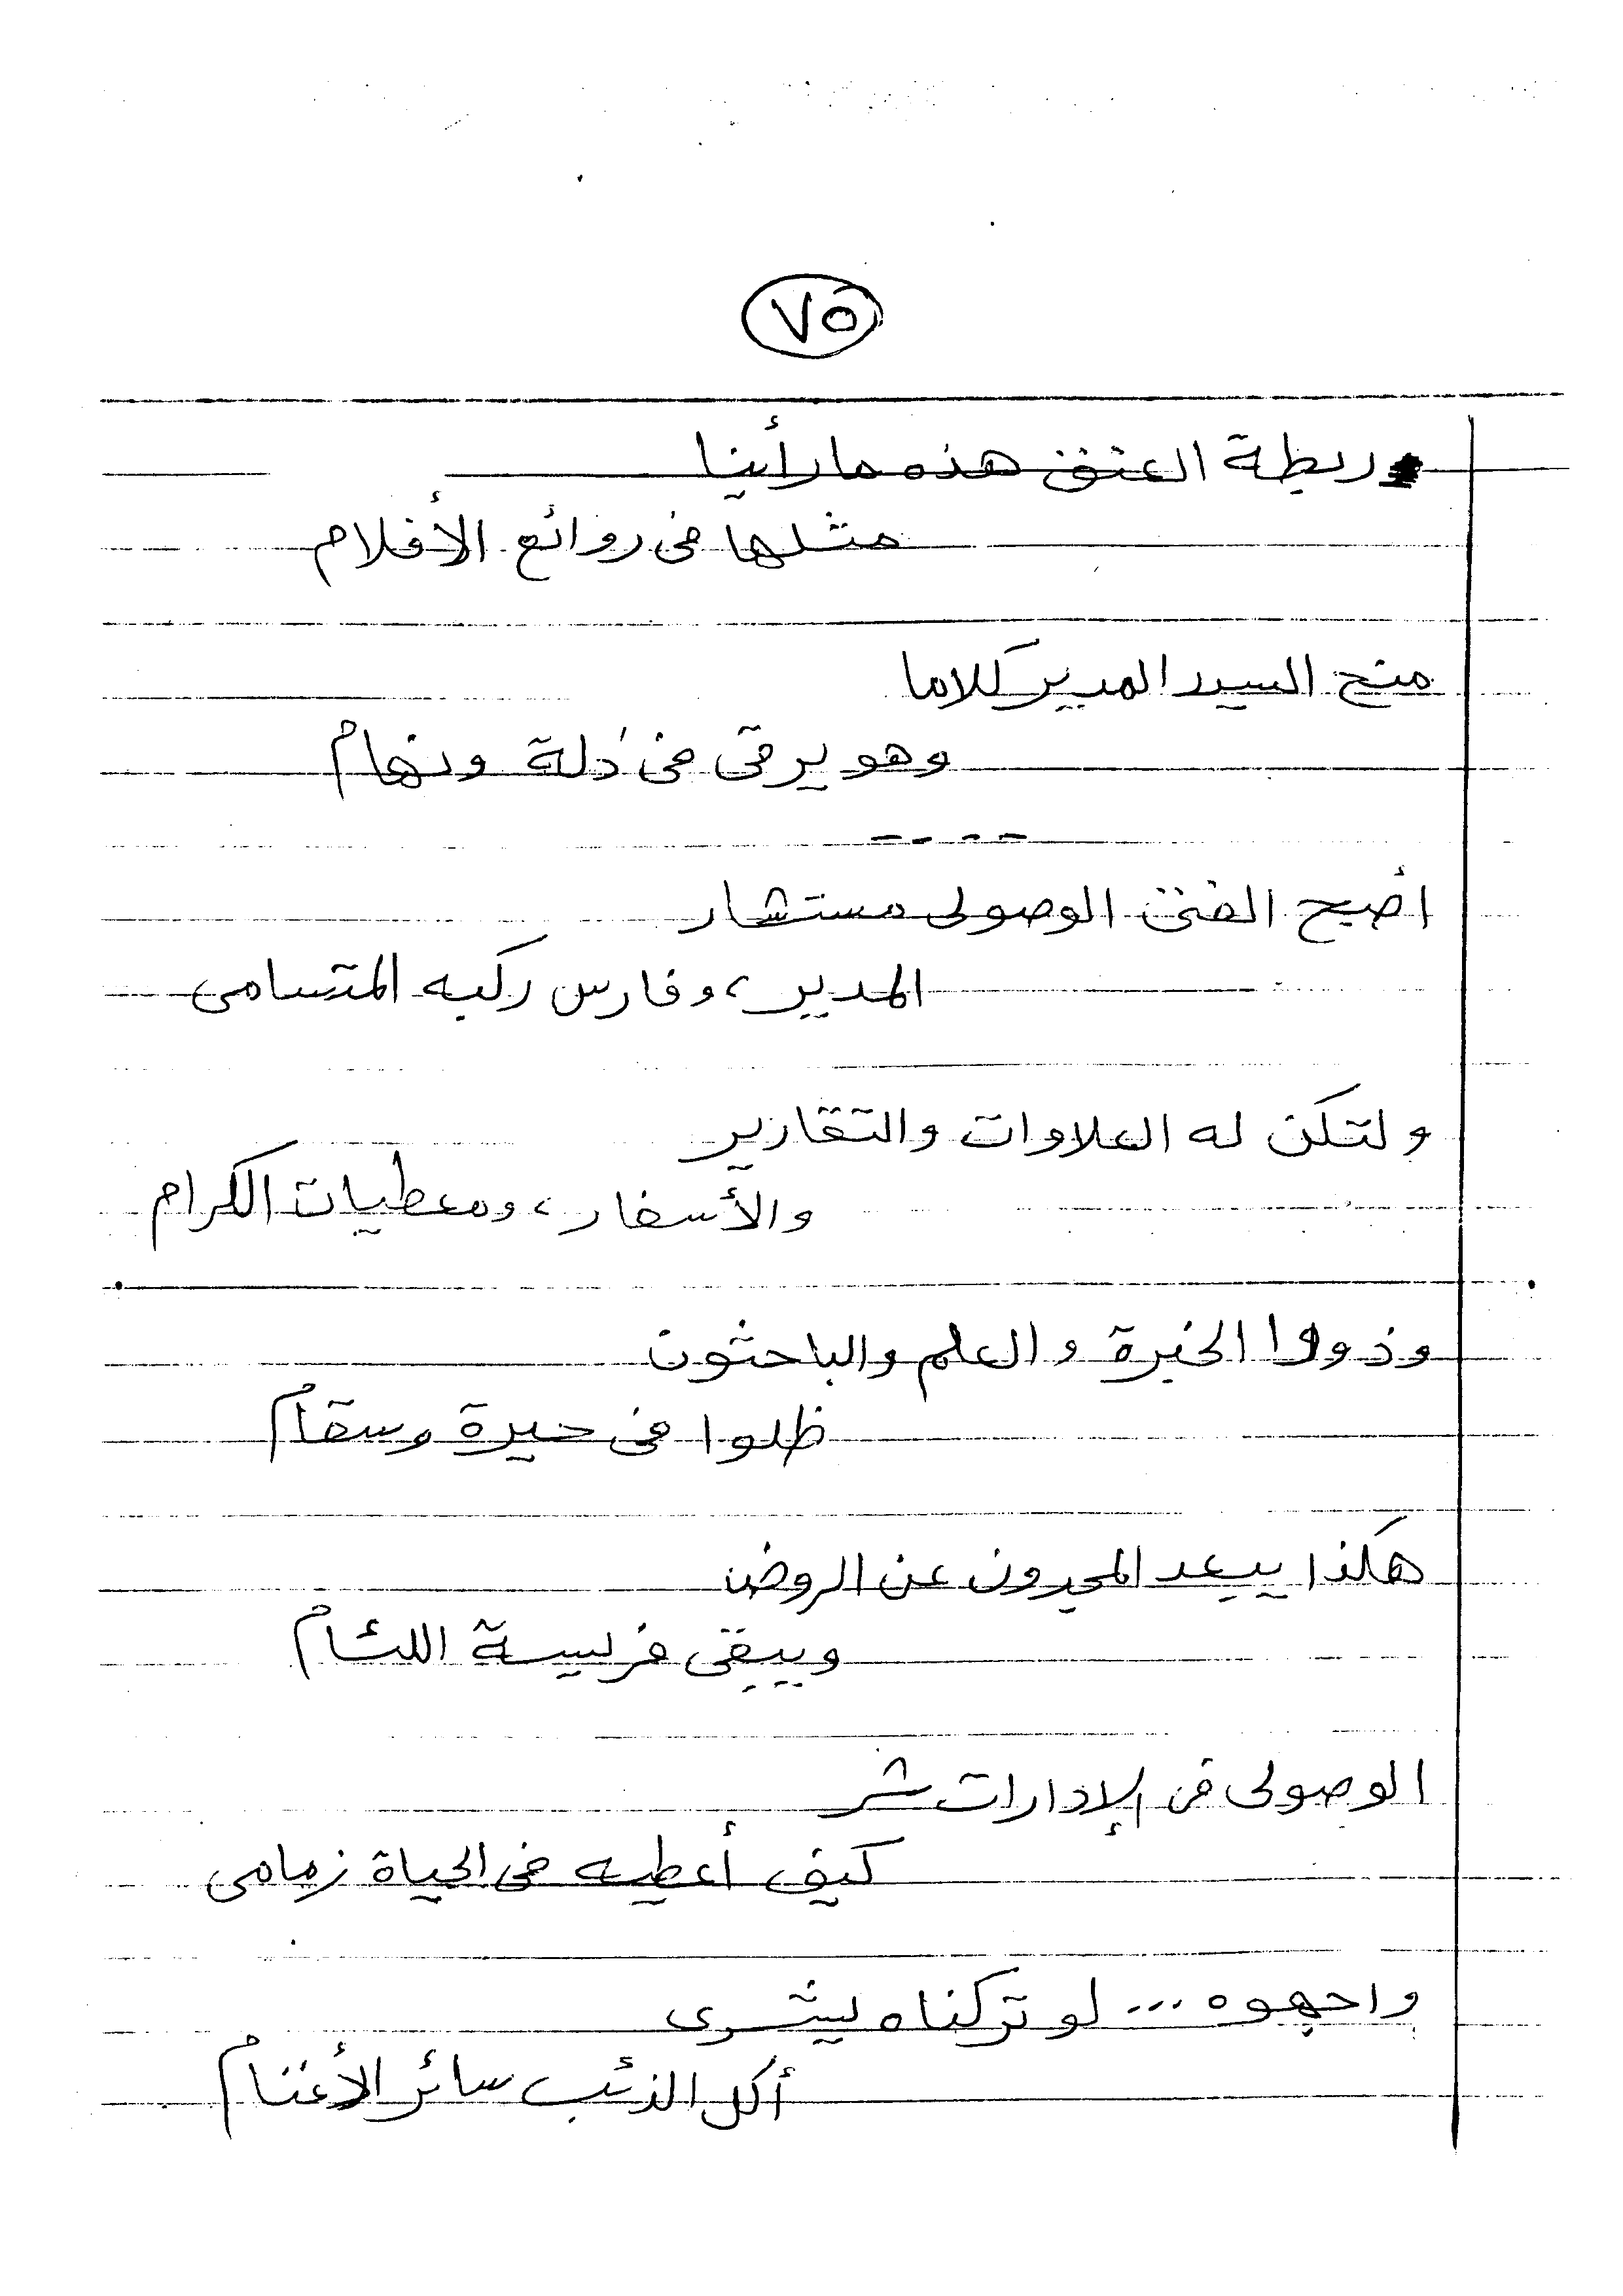 ٧٥
ربطة العنق هذه ما رأينا
مثلها فى روائع الأفلام
منح السيد المدير كلاما
وهو يرقى فى ذلة ونهام
----
أصبح الفتى الوصولى مستشار
المدير، وفارس ركبه المتسامى
ولتكن له العلاوات والتقارير
والأسفار، ومعطيات الكرام
وذووا الخبرة والعلم والباحثون
ظلوا فى حيرة وسقام
هكذا يبعد المجيدون عن الروض
ويبقى فريسة اللئام
الوصولى فى الإدارات شر
كيف أعطيه فى الحياة زمامى
واجهوه ... لو تركناه يشرى
أكل الذئب سائر الأغنام